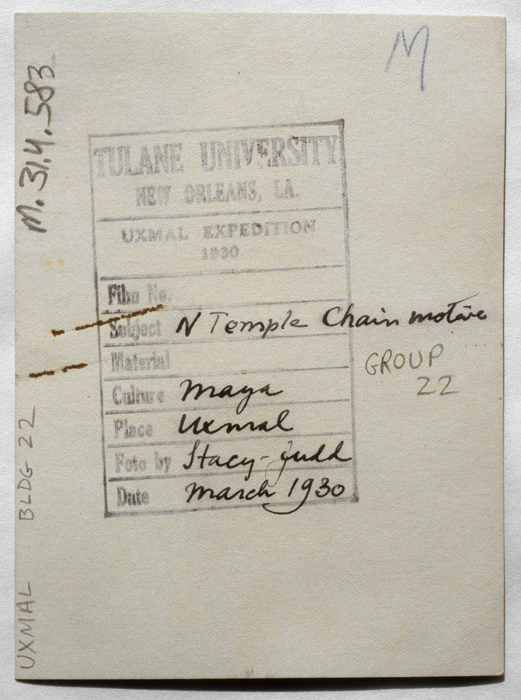 M
M.31.4.583
TULANE UNIVERSITY
NEW ORLEANS, LA.
UXMAL EXPEDITION
1930
Film No.
Subject N Temple Chain motive
Material
GROUP
22
Culture Maya
Place Uxmal
Foto by Stacy-Judd
Date March 1930
UXMAL BLDG 22